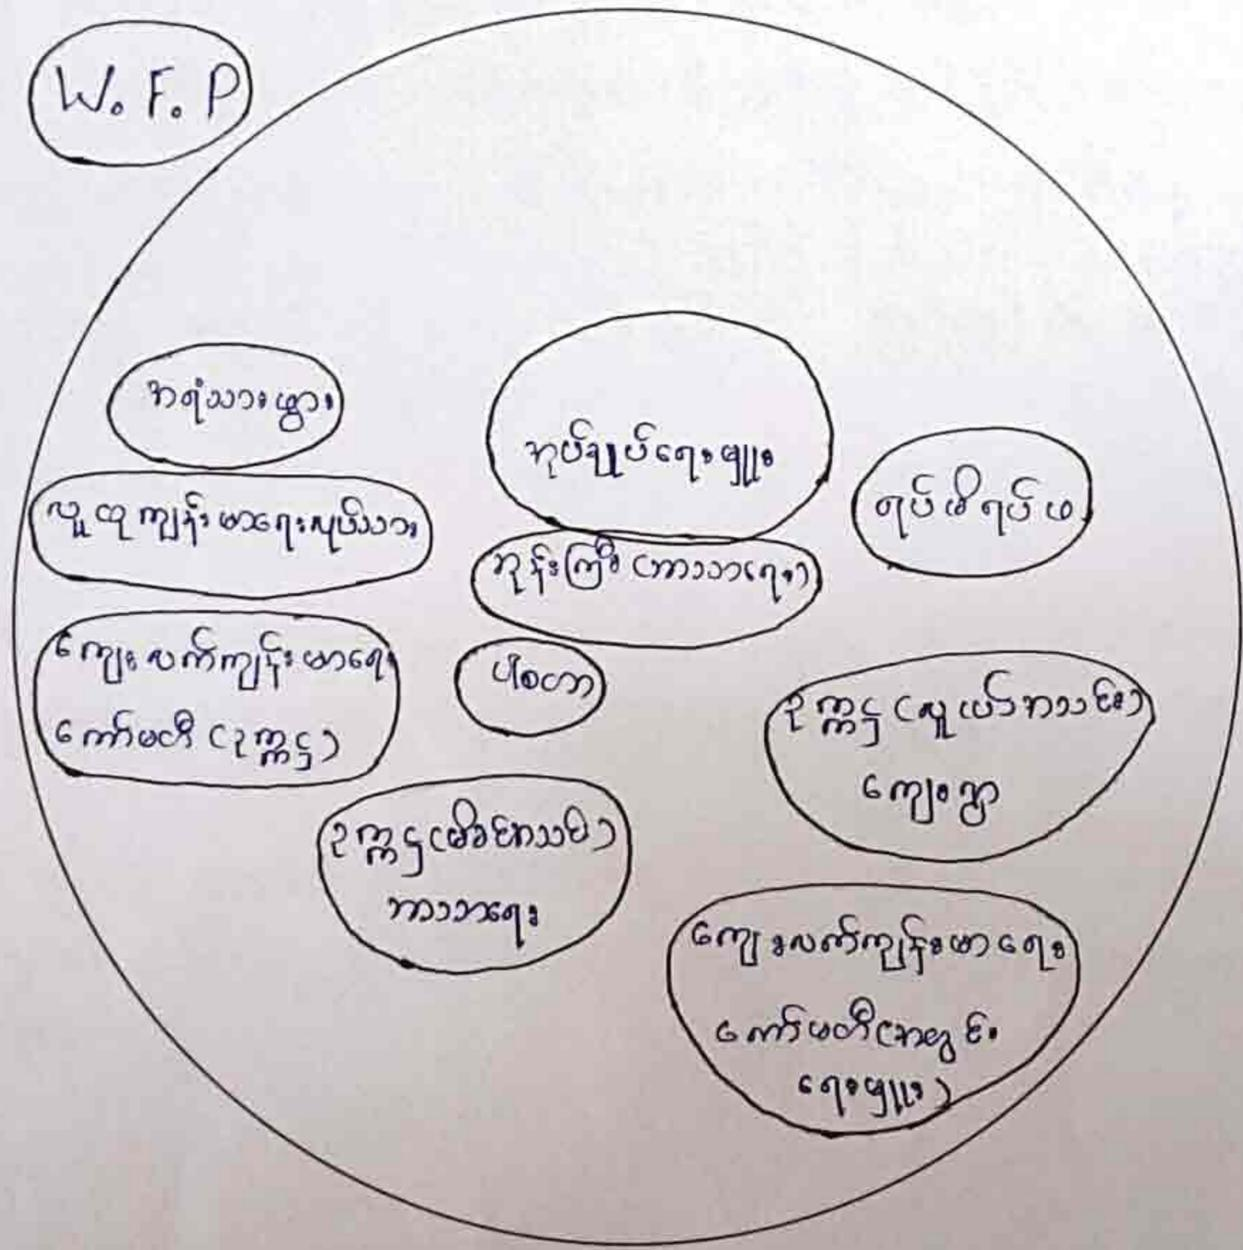 W. F. P
အရံသားဖွား
လူထုကျန်းမာရေးလုပ်သား
ကျေးလက်ကျန်းမာရေး
ကော်မတီ (ဥက္ကဋ္ဌ)
အုပ်ချုပ်ရေးမှူး
ဘုန်းကြီး (ဘာသာရေး)
ပါစတာ
ရပ်မိရပ်ဖ
ဥက္ကဋ္ဌ (လူငယ်အသင်း)
ကျေးရွာ
ဥက္ကဋ္ဌ (မိခင်အသင်း)
ဘာသာရေး
ကျေးလက်ကျန်းမာရေး
ကော်မတီ (အတွင်း
ရေးမှူး)